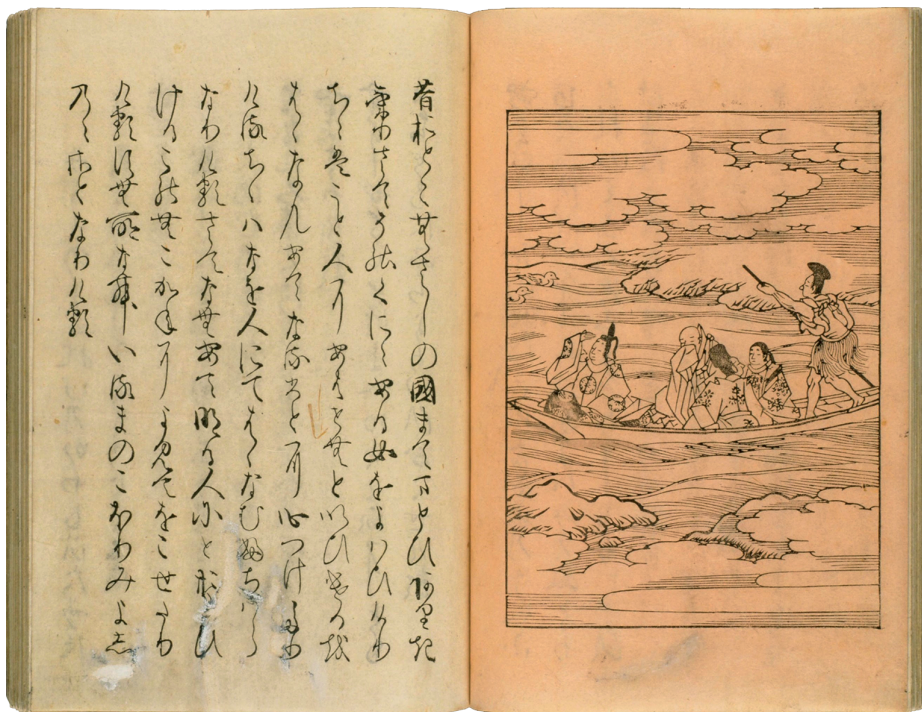 昔おとこむさしの國まてまとひありき
けりさてそのくににある女をよはひけり
ちゝはこと人にあはせむといひけるを
はゝなんあてなる人に心つけたり
けるちゝはなを人にてはゝなむふちはら
なりけるさてなむあてなる人にとおもひ
けるこのむこかねによみてをこせたり
けるすむ所なむいるまのこほりみよし
のゝさとなりける